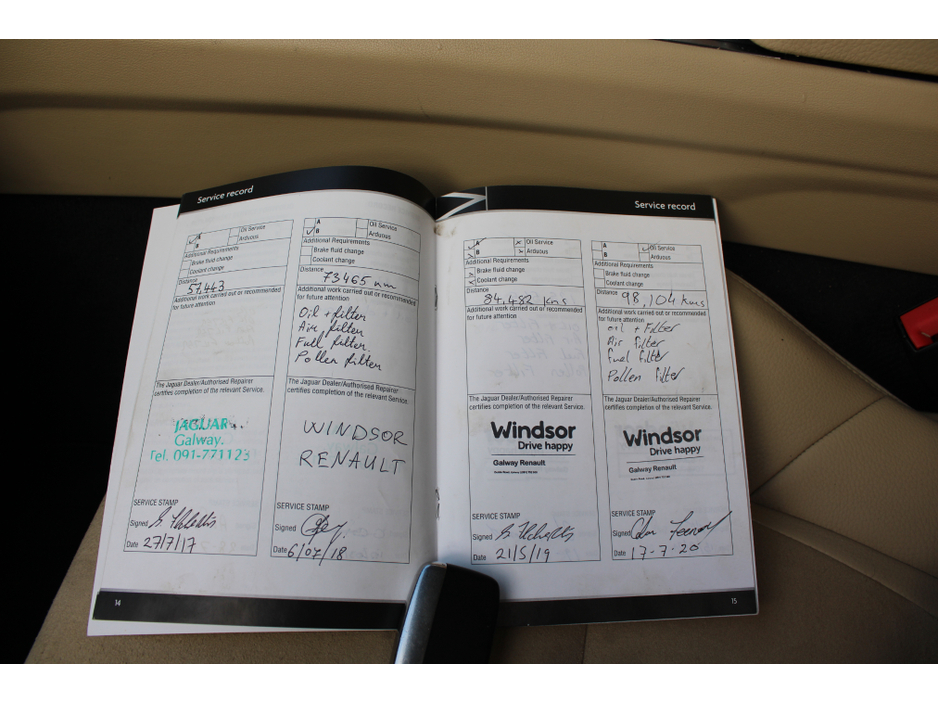 Service record
A
B
Oil Service
Arduous
Additional Requirements
Brake fluid change
Coolant change
Distance
57,443
Additional work carried out or recommended
for future attention
The Jaguar Dealer/Authorised Repairer
certifies completion of the relevant Service.
JAGUAR
Galway.
Tel. 091-771123
SERVICE STAMP
Signed
Date 27/7/17
A
B
Oil Service
Arduous
Additional Requirements
Brake fluid change
Coolant change
Distance
73465 nm
Additional work carried out or recommended
for future attention
Oil + filter
Air filter
Full filter
Pollen filter
The Jaguar Dealer/Authorised Repairer
certifies completion of the relevant Service.
WINDSOR
RENAULT
SERVICE STAMP
Signed
Date 6/07/18
14
Service record
A
B
Oil Service
Arduous
Additional Requirements
Brake fluid change
Coolant change
Distance
84,482 kms
Additional work carried out or recommended
for future attention
The Jaguar Dealer/Authorised Repairer
certifies completion of the relevant Service.
Windsor
Drive happy
Galway Renault
SERVICE STAMP
Signed
Date 21/5/19
A
B
Oil Service
Arduous
Additional Requirements
Brake fluid change
Coolant change
Distance 98,104 kms
Additional work carried out or recommended
for future attention
oil + Filter
Air filter
fuel filter
Pollen filter
The Jaguar Dealer/Authorised Repairer
certifies completion of the relevant Service.
Windsor
Drive happy
Galway Renault
SERVICE STAMP
Signed
Date 17-7-20
15